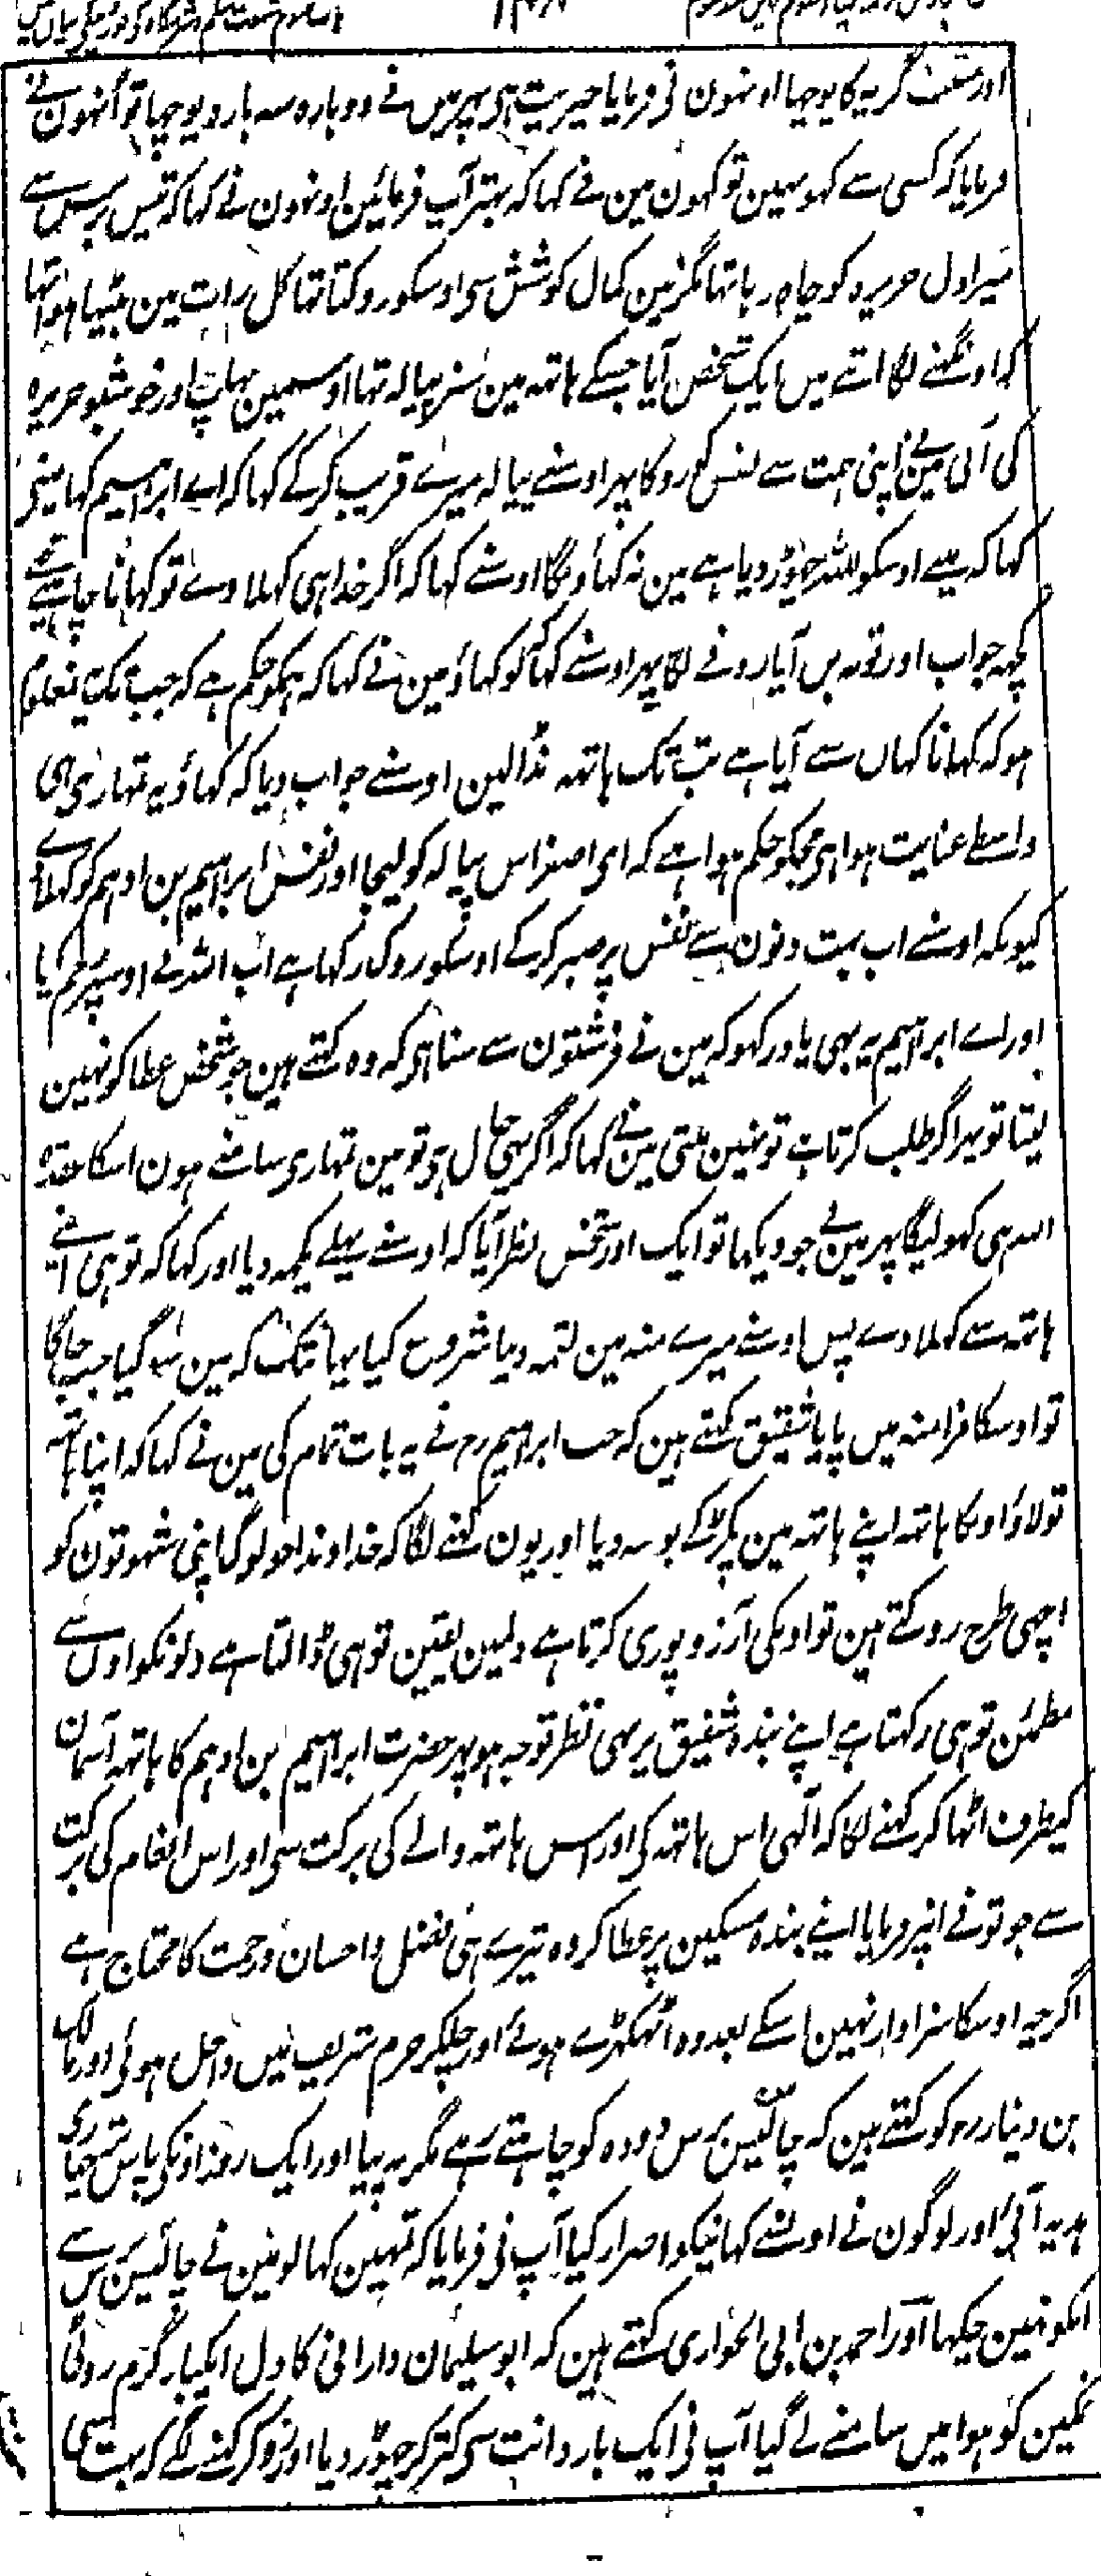 اور سبب گریہ کا پوچہا اونہون نی فرمایا خیریت ہی پہر میں نے دوبارہ سہ بارہ پوچہا تو اُنہون نے
فرمایا کہ کسی سے کہو نہین تو کہون مین نے کہا کہ بہتر آپ فرمائین اونہون نے کہا کہ تیس برس سے
میرا دل حریرہ کو چاہ رہا تہا مگر مین کمال کوشش سی اوسکو روکتا تہا کل رات مین بیٹہا ہوا تہا
کہ اونگہنے لگا اتنے میں ایک شخص آیا جسکے ہاتہہ مین سبز پیالہ تہا اوسمین بہاپ اور خوشبو حریرہ
کی آئی مین نے اپنی ہمت سے نفس کو روکا پہر اوسنے پیالہ میرے قریب کرکے کہا کہ اے ابراہیم کہا مینے
کہا کہ مینے اوسکو للہ چہوڑ دیا ہے مین نہ کہاؤنگا اوسنے کہا کہ اگر خدا ہی کہلا دے تو کہانا چاہئے مجہے
کچہہ جواب اور تو نہ بن آیا رونے لگا پہر اوسنے کہا کہ لو کہاؤ مین نے کہا کہ ہمکو حکم ہے کہ جب تک یہ نمعلوم
ہو کہ کہانا کہاں سے آیا ہے تب تک ہاتہہ نڈالین اوسنے جواب دیا کہ کہاؤ یہ تمہاری ہی
واسطے عنایت ہوا ہی مجکو حکم ہوا ہے کہ ای خضر اس پیالہ کو لیجا اور نفس ابراہیم بن ادہم کو کہلا دے
کیونکہ اوسنے اب بہت دنون سے نفس پر صبر کرکے اوسکو روک رکہا ہے اب اللہ نے اوسپر رحم کیا
اور اے ابراہیم یہ بہی یاد رکہو کہ مین نے فرشتون سے سنا ہی کہ وہ کہتے ہین جو شخص عطا کو نہین
لیتا تو پہر اگر طلب کرتا ہے تو نہین ملتی مین نے کہا کہ اگر یہی حال ہی تو مین تمہاری سامنے ہون اسکا عقدہ
اللہ ہی کہولیگا پہر مین نے جو دیکہا تو ایک اور شخص نظر آیا کہ اوسنے پہلے کچہہ دیا اور کہا کہ تو ہی اپنے
ہاتہہ سے کہلا دے پس اوسنے میرے منہ مین لقمہ دینا شروع کیا یہانتک کہ مین سو گیا جب جاگا
تو اوسکا مزا منہ میں پایا شقیق کہتے ہین کہ جب ابراہیم رح نے یہ بات تمام کی مین نے کہا کہ اپنا ہاتہہ
تو لاؤ اونکا ہاتہہ اپنے ہاتہہ مین پکڑکے بوسہ دیا اور یون کہنے لگا کہ خداوندا جو لوگ اپنی شہوتون کو
اچہی طرح روکتے ہین تو اونکی آرزو پوری کرتا ہے دلمین یقین تو ہی ڈالتا ہے دلونکو اون سے
مطمئن تو ہی رکہتا ہے اپنے بندہ شقیق پر بہی نظر توجہ ہو پہر حضرت ابراہیم بن ادہم کا ہاتہہ آسمان
کیطرف اٹہا کر کہنے لگا کہ الٰہی اس ہاتہہ کی اور اس ہاتہہ والے کی برکت سی اور اس انعام کی برکت
سے جو تونے انپر فرمایا اپنے بندہ مسکین پر عطا کر وہ تیرے ہی فضل و احسان و رحمت کا محتاج ہے
اگرچہ اوسکا سزاوار نہین اسکے بعد وہ اٹہکہڑے ہوئے اور چلکر حرم شریف میں داخل ہوئی اور مالک
بن دینار رح کو کہتے ہین کہ چالیس برس دودہ کو چاہتے رہے مگر نہ پیا اور ایک روز اونکی پاس خرما
ہدیہ آئی اور لوگون نے اونسے کہانیکو اصرار کیا آپ نی فرمایا کہ تمہین کہا لو مین نے چالیس برس سے
انکو نہین چکہا اور احمد بن ابی الحواری کہتے ہین کہ ابو سلیمان دارانی کا دل ایکبار گرم روٹی
نمکین کو ہوا میں سامنے لے گیا آپ نی ایک بار دانت سی کترکر چہوڑ دیا اور روکر کہنے لگے کہ بہت سی